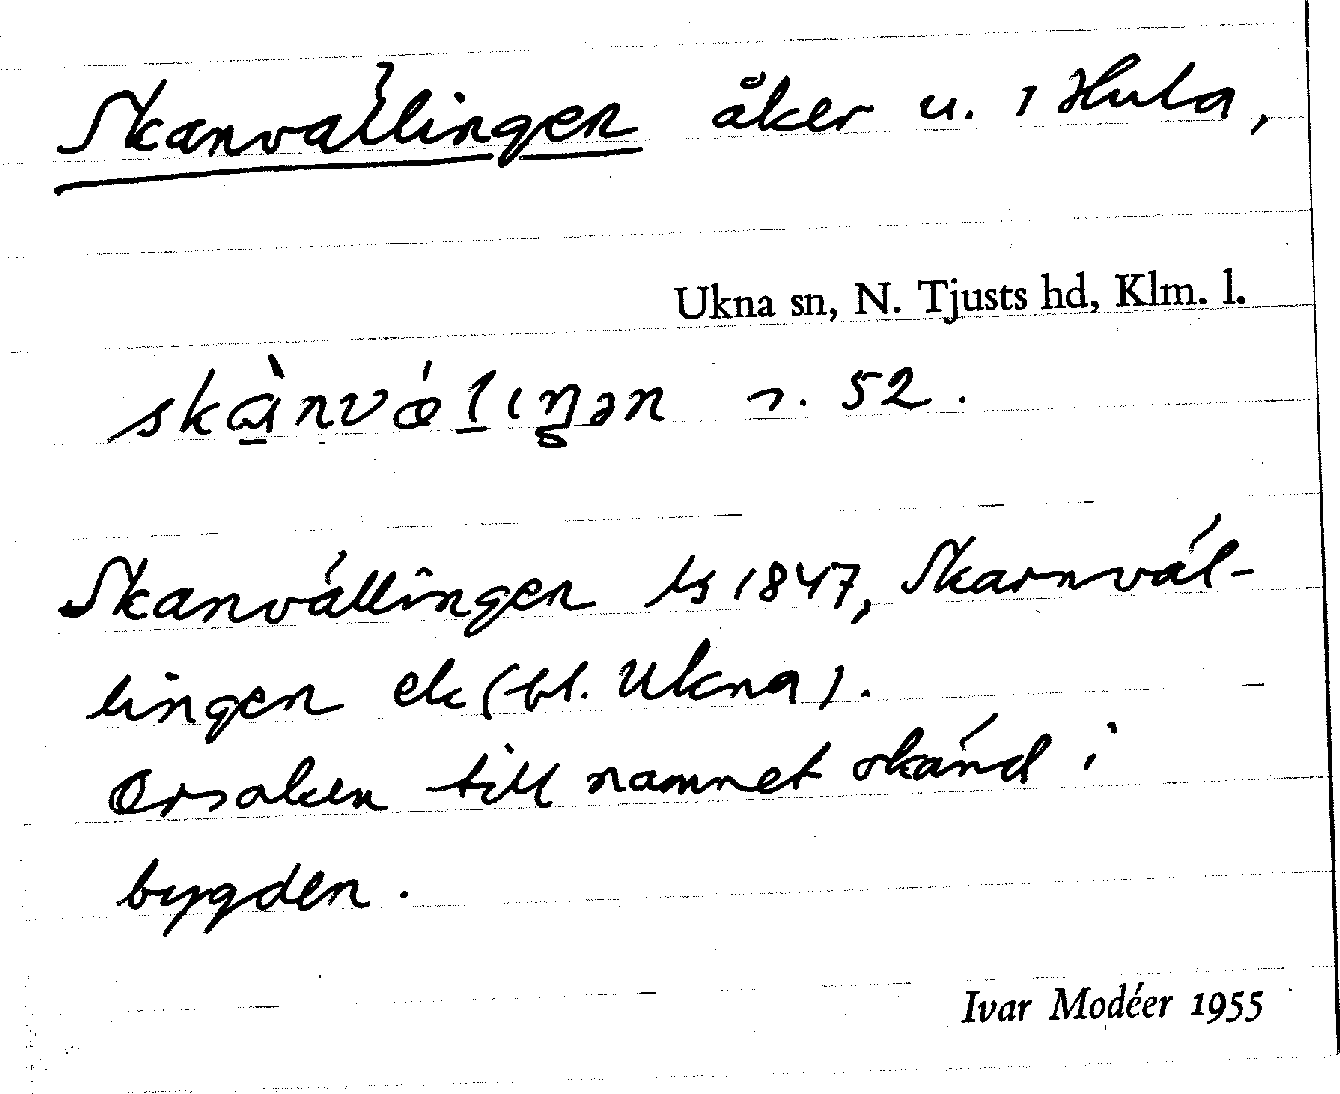 Skanvällingen åker u. 1 Hula,
Ukna sn, N. Tjusts hd, Klm. l.
52.
Skanvällingen ls 1847, Skarnväl-
lingen ek (bl. Ukna).
Orsaken till namnet okänd i
bygden.
Ivar Modéer 1955